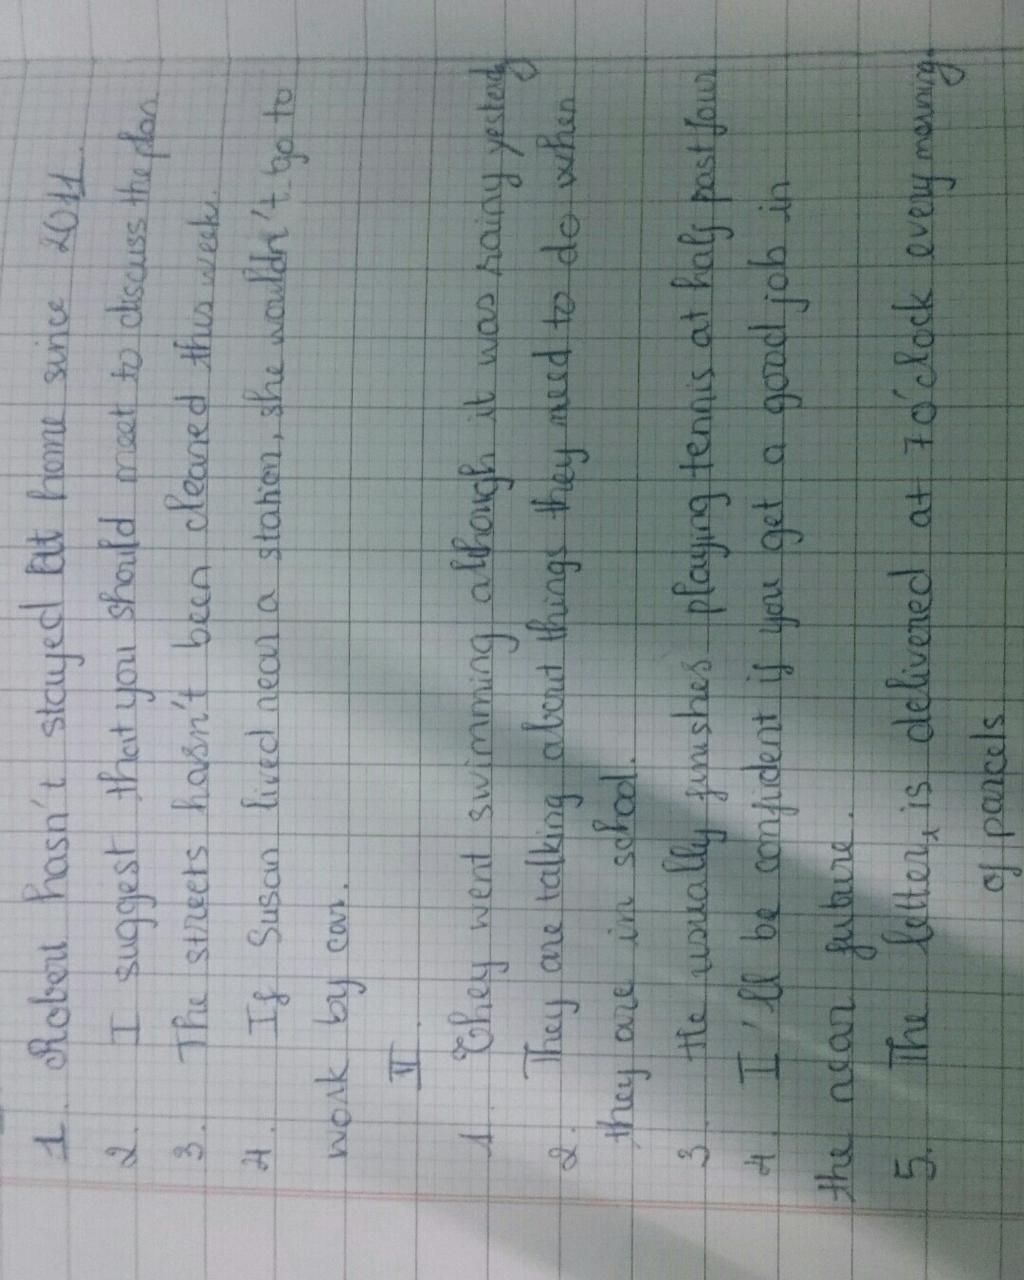 1. Robert hasn't stayed at home since 2011.
2. I suggest that you should meet to discuss the plan
3. The streets hasn't been cleaned this week.
4. If Susan lived near a station, she wouldn't go to
work by car.
VI.
1. They went swimming although it was rainy yesterday
2. They are talking about things they need to do when
they are in school.
3. He usually finishes playing tennis at half past four
4. I'll be confident if you get a good job in
the near future.
5. The letter is delivered at 7 o'clock every morning.
of parcels